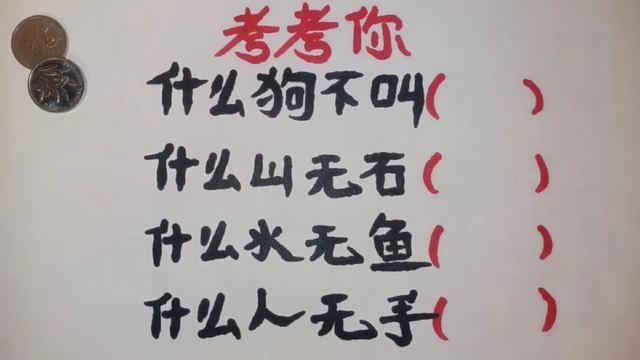 考考你
什么狗不叫(   )
什么山无石(   )
什么水无鱼(   )
什么人无手(   )